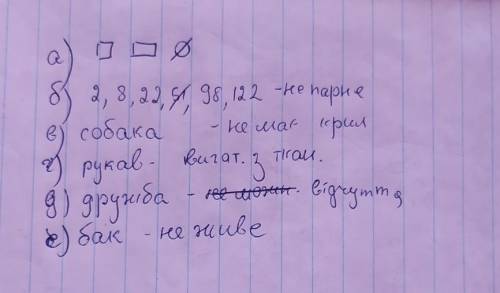 а) □ □ ∅
б) 2, 8, 22, 51, 98, 122 - не парне
в) собака - не має крил
г) рукав - вигат. з ткан.
д) дружба - відчуття
е) бак - не живе